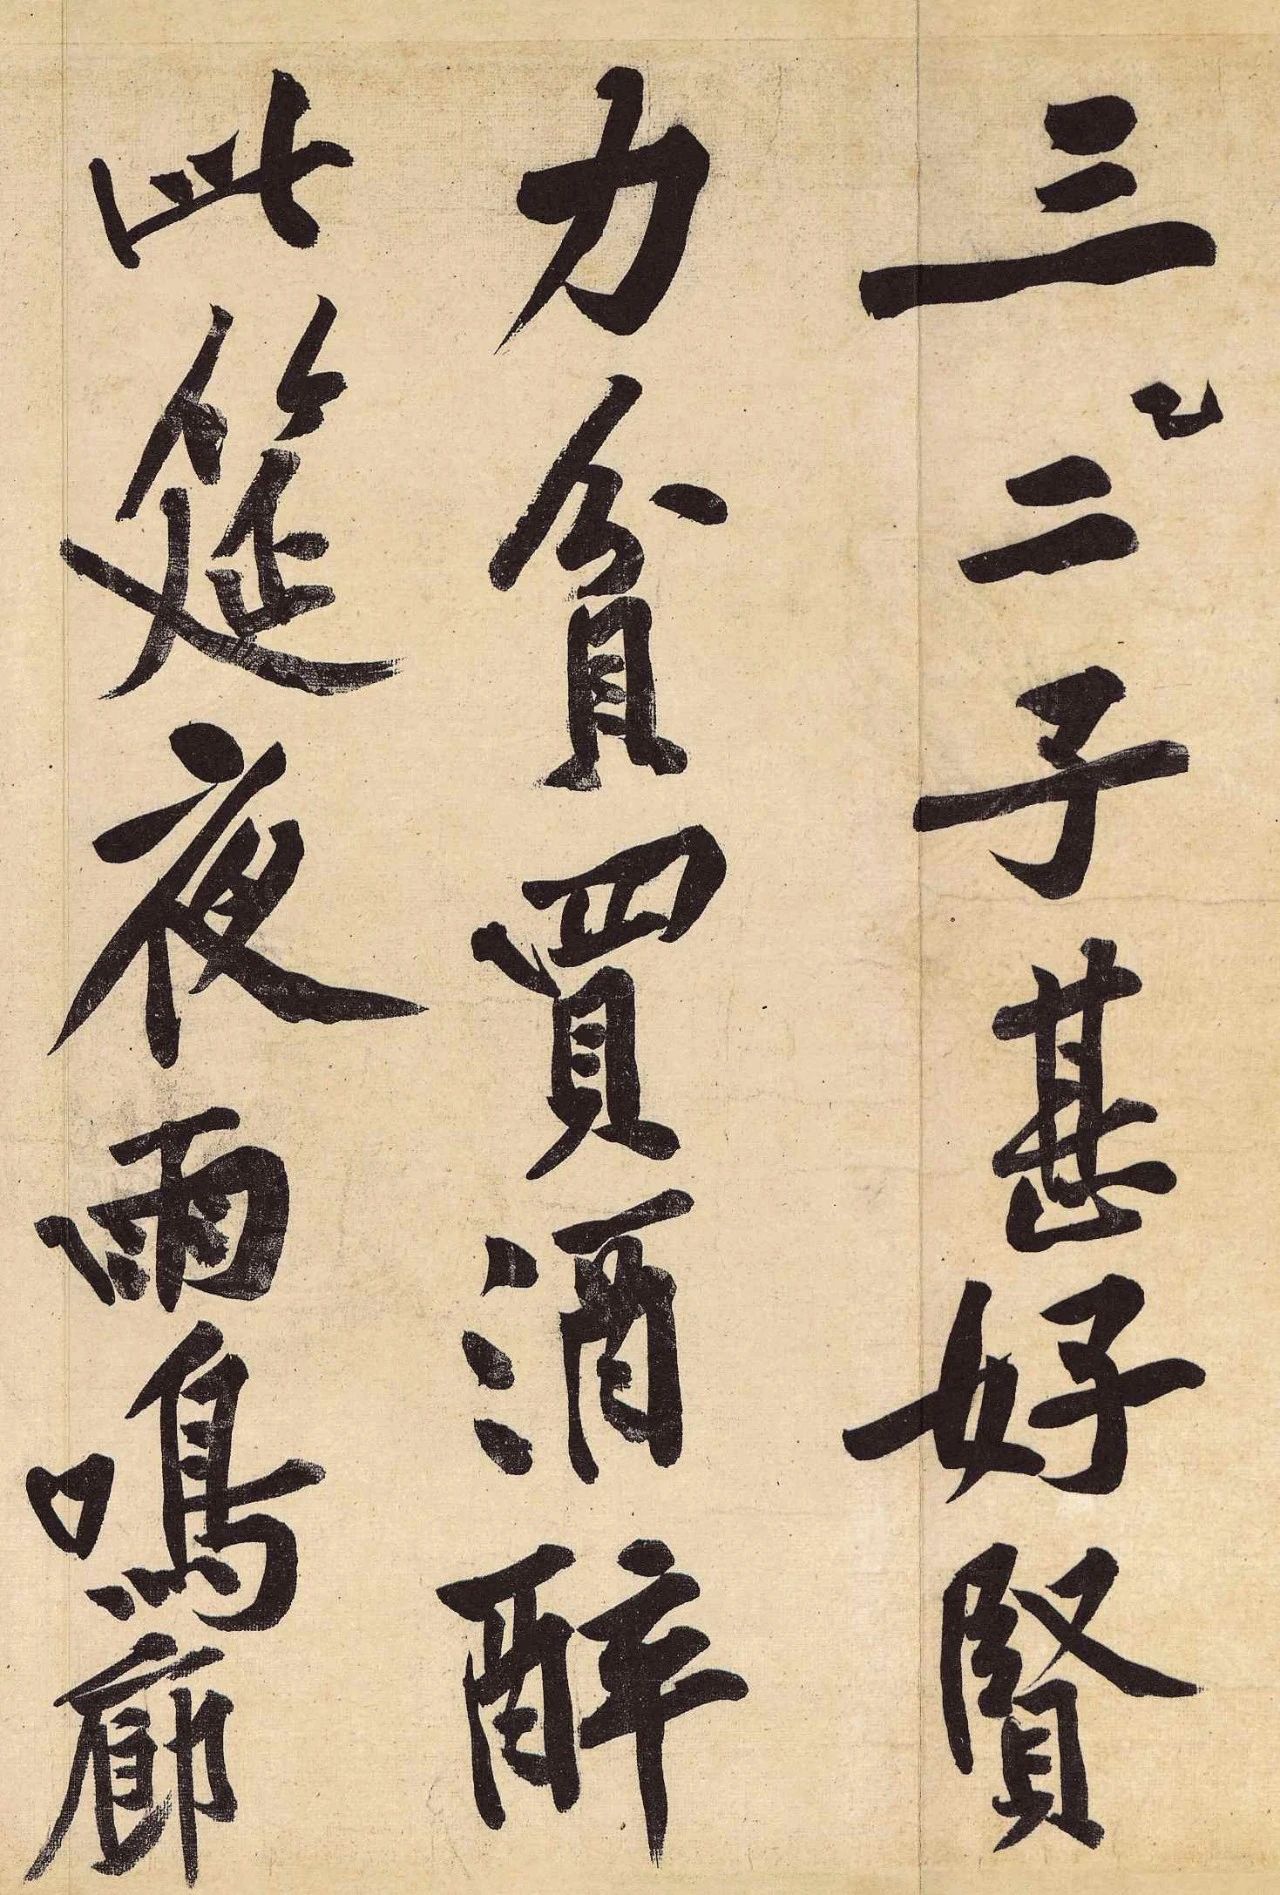 三二子甚好賢
力貧買酒醉
此筵夜雨鳴廊